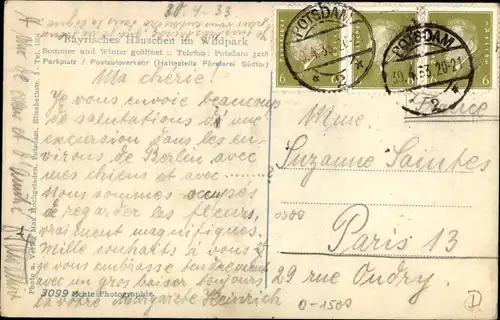 30.4.33
Bayrisches Häuschen im Wildpark
Sommer und Winter geöffnet :: Telefon: Potsdam 3218
Parkplatz / Postautoverkehr (Haltestelle Försterei Südtor)
Ma chérie!
Je vous envoie beaucoup
de salutations de une
excursion dans les en-
virons de Berlin avec
mes chiens et avec ........
Nous sommes occupés
de regarder les fleurs,
vraiment magnifiques.
Mille souhaits à vous et
je vous embrasse tendrement
avec un gros baiser toujours
la vôtre Margarete Heinrich
3099 Echte Photographie
Photo u. Verlag Max Hochgeladen, Potsdam, Elisabethstr.
POTSDAM
30.4.33.20-21
2
POTSDAM
30.4.33.20-21
6
6
6
France
Mme
Suzanne Saintes
Paris 13
29 rue Oudry
0-1500
D